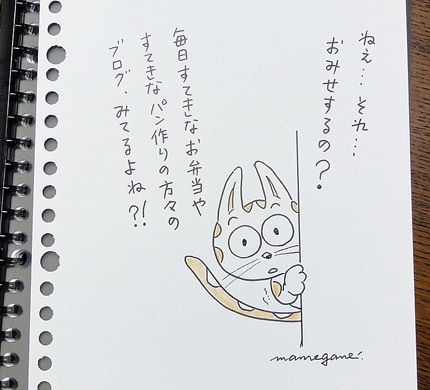 ねぇ…それ…
おみせするの？
毎日すてきなお弁当や
すてきなパン作りの方々の
ブログ、みてるよね?!
mamegane